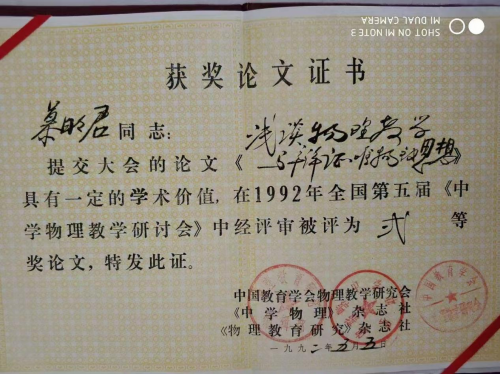 获奖论文证书
慕明君同志：
浅谈物理教学
提交大会的论文《与辩证唯物主义思想》
具有一定的学术价值，在1992年全国第五届《中
学物理教学研讨会》中经评审被评为 弍 等
奖论文，特发此证。
中国教育学会物理教学研究会
《中学物理》杂志社
《物理教育研究》杂志社
一九九二年五月五日
SHOT ON MI NOTE 3
MI DUAL CAMERA